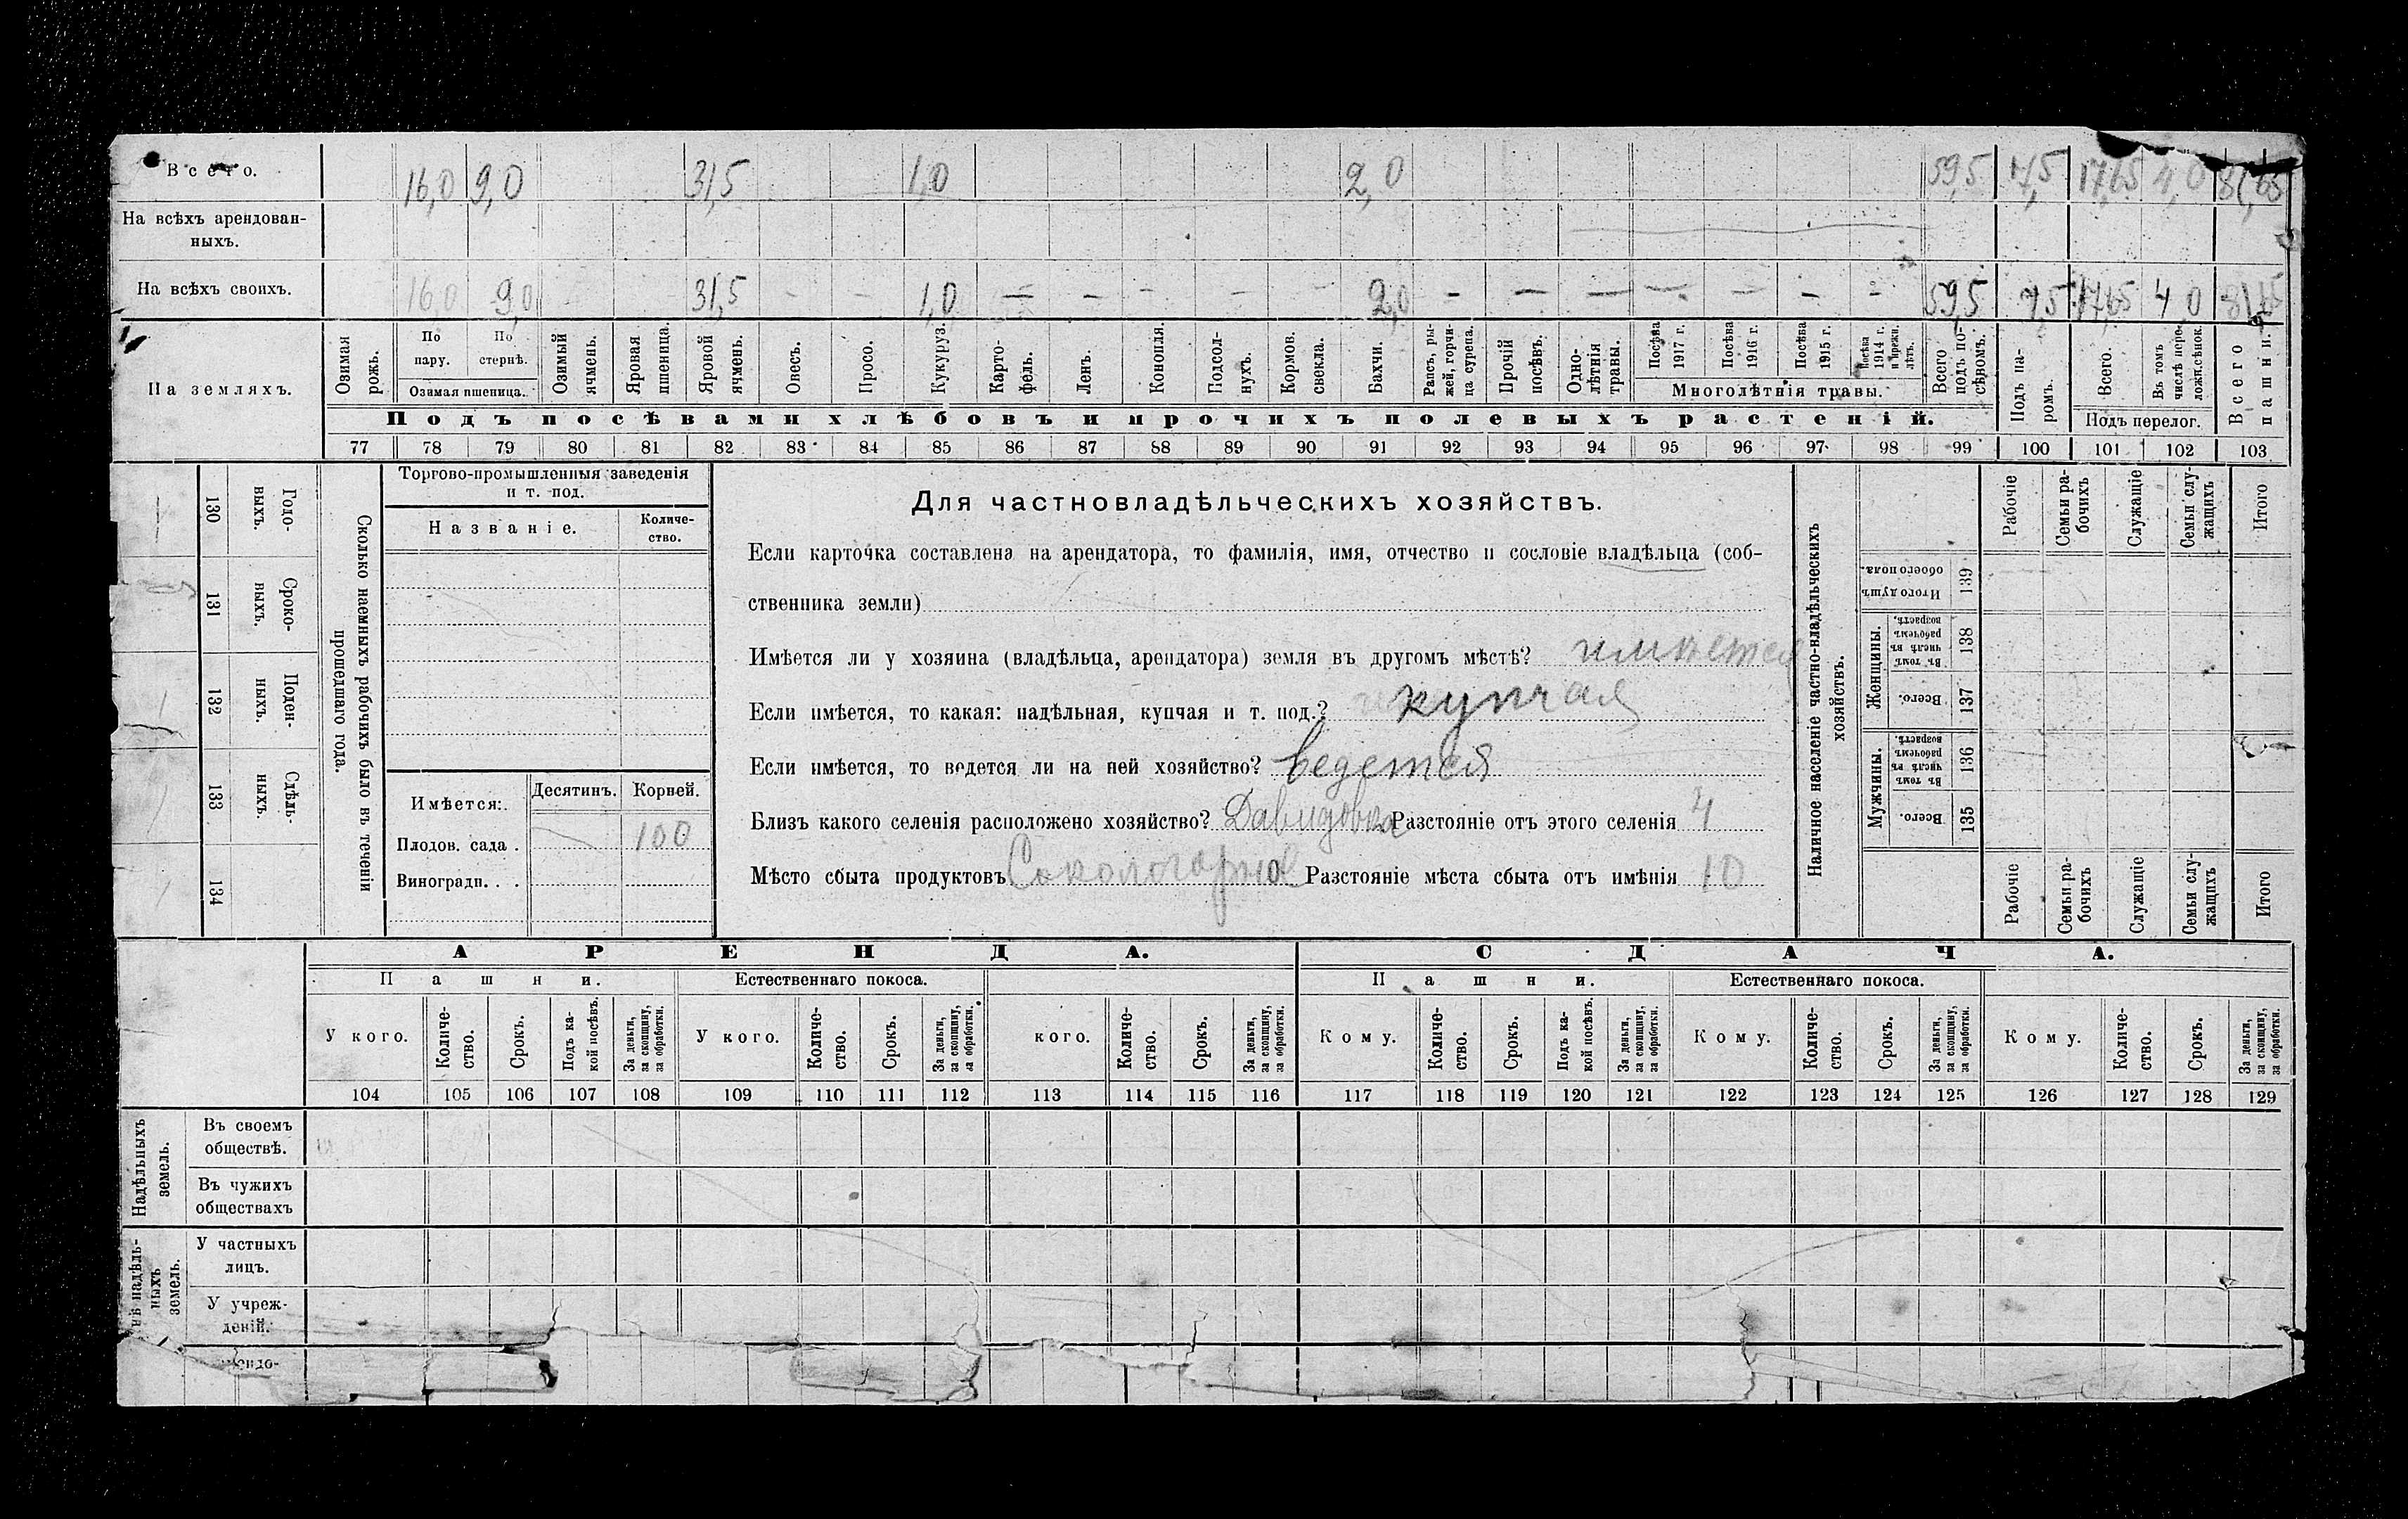 Всего. 16,0 9,0 31,5 1,0 2,0 59,5 17,65 4,0
На всѣхъ арендован-
ныхъ.
На всѣхъ своихъ. 16,0 9,0 - - 31,5 - - 1,0 - - - - - 2,0 - - - - - - - 59,5 17,65 4,0
На земляхъ.
Озимая рожь.
По пару.
По стернѣ.
Озимая пшеница.
Озимый ячмень.
Яровая пшеница.
Яровой ячмень.
Овесъ.
Просо.
Кукуруз.
Карто-
фель.
Ленъ.
Конопля.
Подсол-
нухъ.
Кормов. свекла.
Бахчи.
Рапсъ, ры-
жей, горчи-
ца сурепа.
Прочій посѣвъ.
Одно-
лѣтнія травы.
Посѣва 1917 г.
Посѣва 1916 г.
Посѣва 1915 г.
Посѣва 1914 г. и прежн. лѣтъ.
Многолѣтнія травы.
Всего подъ по-
сѣвомъ.
Подъ посѣвами хлѣбовъ и прочихъ полевыхъ растеній.
Подъ па-
ромъ.
Всего.
Въ томъ числѣ пере-
ложн. сѣнок.
Подъ перелог.
Всего пашни.
77 78 79 80 81 82 83 84 85 86 87 88 89 90 91 92 93 94 95 96 97 98 99 100 101 102 103
130 Годо-
выхъ.
131 Сроко-
ныхъ.
132 Поден-
ныхъ.
133 Сдѣль-
ныхъ.
134
Сколько наемныхъ рабочихъ было въ теченіи
прошедшаго года.
Торгово-промышленныя заведенія
и т. под.
Названіе.
Количе-
ство.
Имѣется:
Десятинъ. Корней.
Плодов. сада . 100
Виноградн. . .
Для частновладѣльческихъ хозяйствъ.
Если карточка составлена на арендатора, то фамилія, имя, отчество и сословіе владѣльца (соб-
ственника земли)
Имѣется ли у хозяина (владѣльца, арендатора) земля въ другомъ мѣстѣ? имѣется
Если имѣется, то какая: надѣльная, купчая и т. под.? купчая
Если имѣется, то ведется ли на ней хозяйство? ведется
Близъ какого селенія расположено хозяйство? Давидовка Разстояніе отъ этого селенія 4
Мѣсто сбыта продуктовъ Сокологорное Разстояніе мѣста сбыта отъ имѣнія 10
Наличное населеніе частно-владѣльческихъ
хозяйствъ.
Рабочіе
Семьи ра-
бочихъ
Служащіе
Семьи слу-
жащихъ
Итого
Итого душъ обоего пола. 139
Женщины.
Въ томъ числѣ въ рабочемъ возрастѣ. 138
Всего. 137
Мужчины.
Въ томъ числѣ въ рабочемъ возрастѣ. 136
Всего. 135
Рабочіе
Семьи ра-
бочихъ
Служащіе
Семьи слу-
жащихъ
Итого
АРЕНДА. СДАЧА.
Пашни. Естественнаго покоса. Пашни. Естественнаго покоса.
У кого.
Количе-
ство.
Срокъ.
Подъ ка-
кой посѣвъ.
За деньги,
за скопщину,
за обработки.
У кого.
Количе-
ство.
Срокъ.
За деньги,
за скопщину,
за обработки.
кого.
Количе-
ство.
Срокъ.
За деньги,
за скопщину,
за обработки.
Кому.
Количе-
ство.
Срокъ.
Подъ ка-
кой посѣвъ.
За деньги,
за скопщину,
за обработки.
Кому.
Количе-
ство.
Срокъ.
За деньги,
за скопщину,
за обработки.
Кому.
Количе-
ство.
Срокъ.
За деньги,
за скопщину,
за обработки.
104 105 106 107 108 109 110 111 112 113 114 115 116 117 118 119 120 121 122 123 124 125 126 127 128 129
Надѣльныхъ
земель.
Въ своемъ
обществѣ.
Въ чужихъ
обществахъ
надѣль-
ныхъ
земель.
У частныхъ
лицъ.
У учреж-
деній.